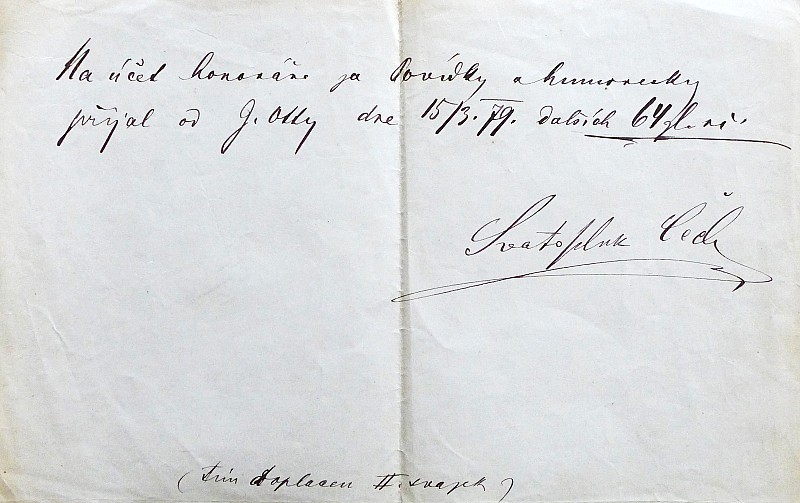 Na účet honoráře za Povídky a humoresky
přijal od J. Otty dne 15/3. 79. dalších 64 zl. r. č.
Svatopluk Čech
(tím doplacen II. svazek)